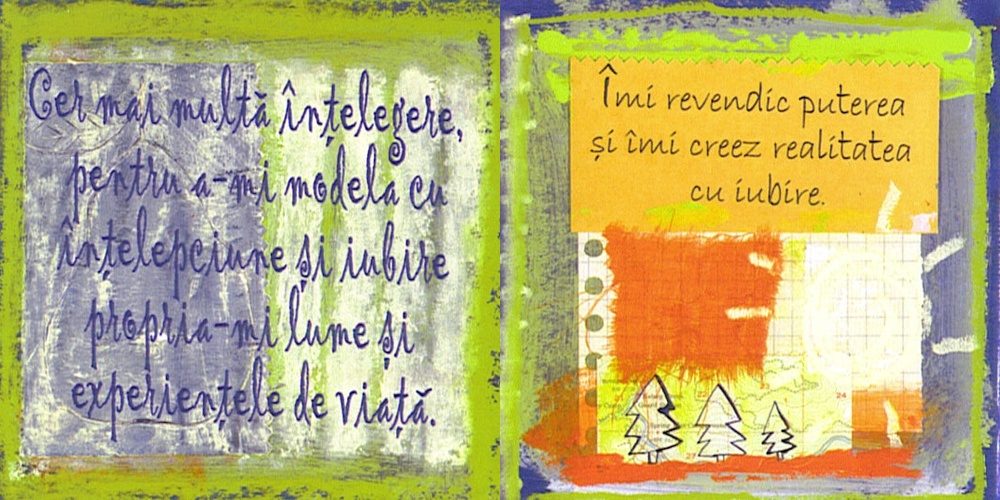 Cer mai multă înțelegere,
pentru a-mi modela cu
înțelepciune și iubire
propria-mi lume și
experiențele de viață.
Îmi revendic puterea
și îmi creez realitatea
cu iubire.
22
24
27